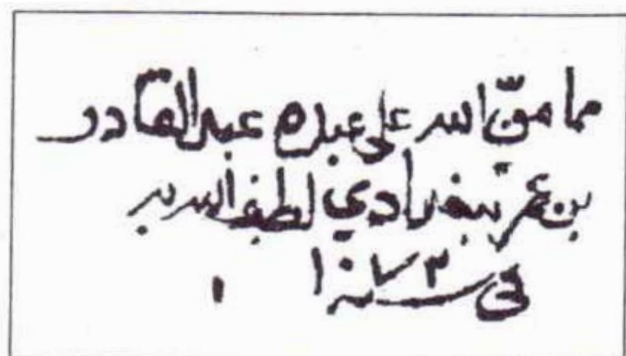 مما منّ الله على عبده عبد القادر
بن عمر البغدادي لطف الله به
في سنة ١٠٧٣